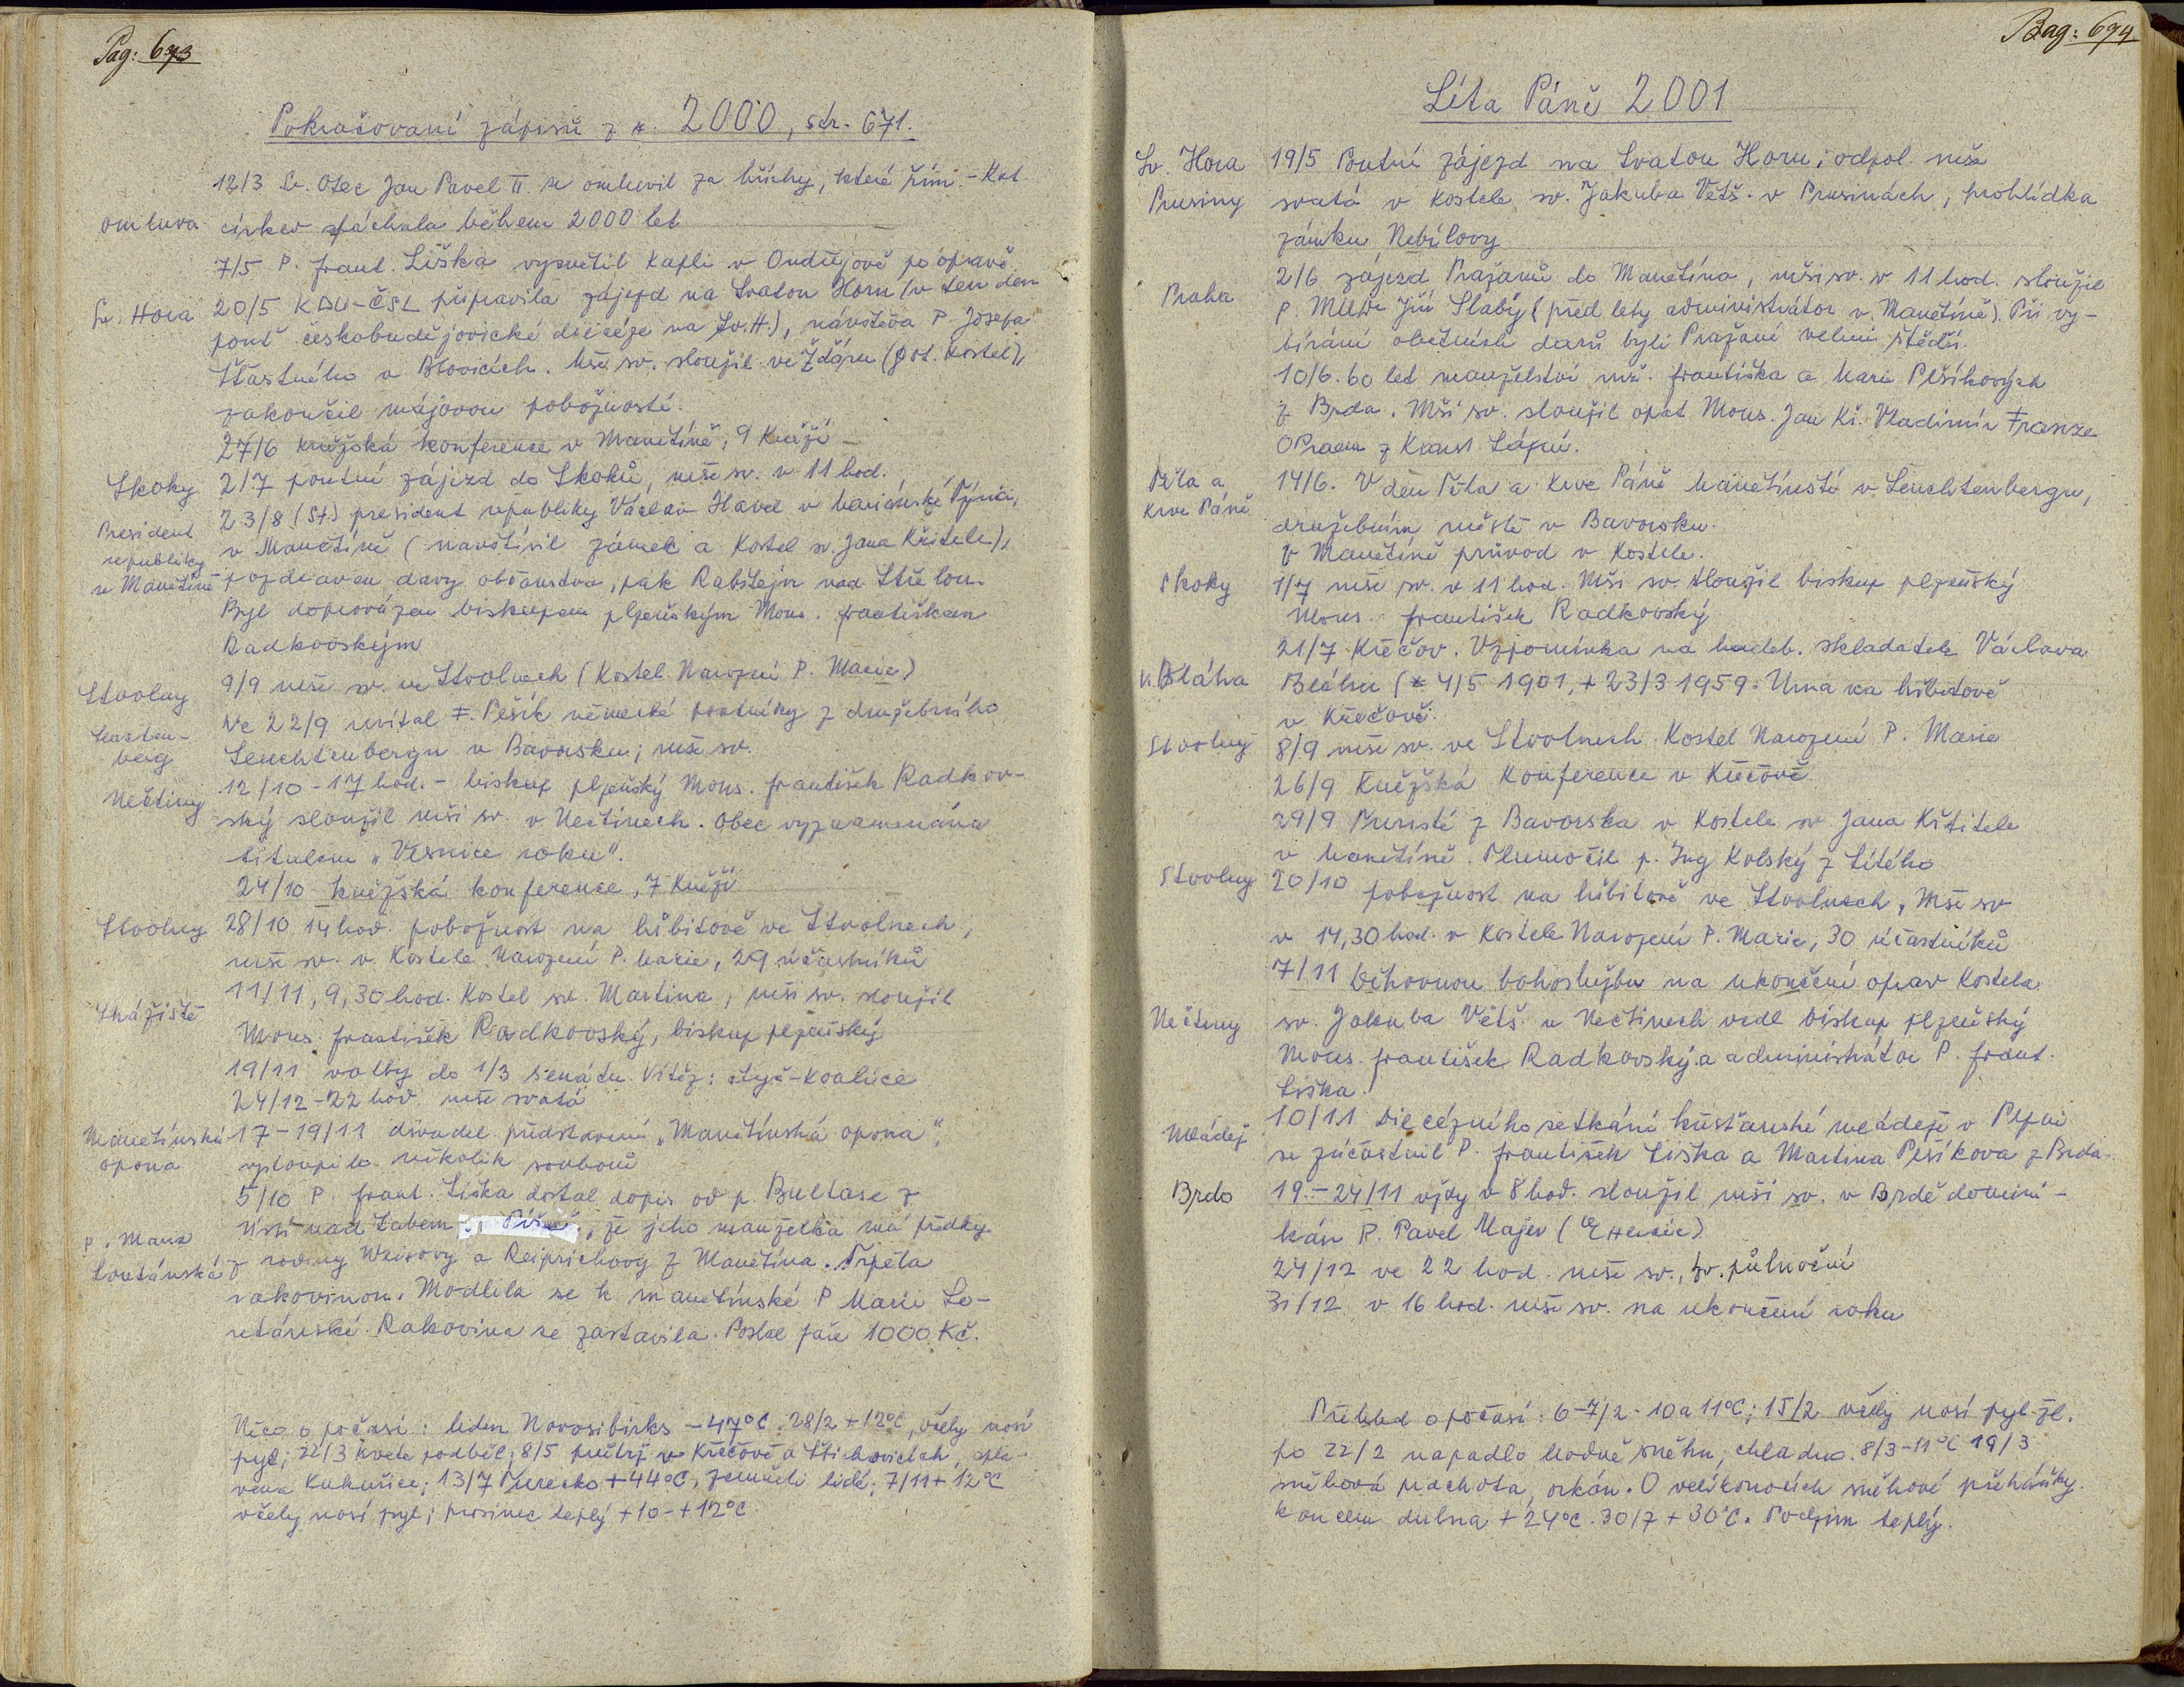 Pag: 673
Pokračovaní zápisů z r. 2000, str. 671.
12/3 Sv. Otec Jan Pavel II. se omluvil za hříchy, které Řím.-Kat.
omluva církev spáchala během 2000 let
7/5 P. Frant. Liška vysvětil kapli v Ondřejově po opravě.
Sv. Hora 20/5 KDU-ČSL připravila zájezd na Svatou Horu (v ten den
pouť českobudějovické diecéze na Sv. H.), návštěva P. Josefa
Šťastného v Blovicích. Mši sv. sloužil ve Žďáru (got. kostel),
zakončil májovou pobožností.
27/6 kněžská konference v Manětíně, 9 kněží
Skoky 2/7 poutní zájezd do Skoků, mše sv. v 11 hod.
President
republiky
v Manětíně
23/8 (St.) president republiky Václav Havel v Mariánské Týnici,
v Manětíně (navštívil zámek a kostel sv. Jana Křtitele),
pozdraven davy občanstva, pak Rabštejn nad Střelou.
Byl doprovázen biskupem plzeňským Mons. Františkem
Radkovským
Stvolny 9/9 mše sv. ve Stvolnech (kostel Narození P. Marie)
Ve 22/9 uvítal F. Pešík německé poutníky z družebního
berg Leuchtenbergu v Bavorsku; mše sv.
12/10 - 17 hod. - biskup plzeňský Mons. František Radkov-
Nečtiny ský sloužil mši sv. v Nečtinech. Obec vyznamenána
titulem „Vesnice roku".
24/10 kněžská konference, 7 kněží
Stvolny 28/10 14 hod. pobožnost na hřbitově ve Stvolnech,
mše sv. v kostele Narození P. Marie, 29 účastníků
Strážiště 11/11, 9,30 hod. Kostel sv. Martina, mši sv. sloužil
Mons. František Radkovský, biskup plzeňský
19/11 volby do 1/3 senátu. Vítěz: čtyř-koalice
24/12 - 22 hod. mše svatá
Manětínská
opona
17-19/11 divadel. představení „Manětínská opona",
vystoupilo několik souborů
5/10 P. Frant. Liška dostal dopis od p. Bultase z
Ústí nad Labem , že jeho manželka má předky
P. Maria
Loretánská
z rodiny Weisovy a Reiprichovy z Manětína. Trpěla
rakovinou. Modlila se k manětínské P. Marii Lo-
retánské. Rakovina se zastavila. Poslal paze 1000 Kč.
Něco o počasí: leden Novosibirks -47°C. 28/2 +12°C, včely nosí
pyl; 22/3 kvete podběl; 8/5 průtrž v Křečově a Štichovicích, 
vena kukuřice; 13/7 Turecko +44°C, zemřeli lidé; 7/11 +12°C
včely nosí pyl; prosinec teplý +10-+12°C
Pag: 694
Léta Páně 2001
Sv. Hora 19/5 Poutní zájezd na Svatou Horu; odpol. mše
Prusiny svatá v kostele sv. Jakuba Větš. v Prusinách, prohlídka
zámku Nebílovy
Praha 2/6 zájezd Pražanů do Manětína, mši sv. v 11 hod. sloužil
P. MUDr Jiří Slabý (před lety administrátor v Manětíně). Při vy-
bírání obětních darů byli Pražané velmi štědří.
10/6. 60 let manželství mž. Františka a Marie Pešíkových
z Brda. Mši sv. sloužil opat Mons. Jan Kř. Vladimír Franze
OPraem z Kanst. Lázní.
Těla a
Krve Páně
14/6. V den Těla a Krve Páně Manětínští v Leuchtenbergu,
družebním městě v Bavorsku.
V Manětíně průvod v kostele.
Skoky 1/7 mše sv. v 11 hod. Mši sv. sloužil biskup plzeňský
Mons. František Radkovský
21/7 Křečov. Vzpomínka na hudeb. skladatele Václava
V. Bláha Bláhu (* 4/5 1901, + 23/3 1959. Urna na hřbitově
v Křečově.
Stvolny 8/9 mše sv. ve Stvolnech. Kostel Narození P. Marie
26/9 Kněžská konference v Křečově.
29/9 Turisté z Bavorska v kostele sv. Jana Křtitele
v Manětíně. Tlumočil p. Ing Kolský z Lítého
Stvolny 20/10 pobožnost na hřbitově ve Stvolnech, Mše sv
v 14,30 hod. v kostele Narození P. Marie, 30 účastníků
7/11 Děkovnou bohoslužbu na ukončení oprav kostela
Nečtiny sv. Jakuba Větš. v Nečtinech vedl biskup plzeňský
Mons. František Radkovský a administrátor P. Frant.
Liška.
Mládež 10/11 Diecézního setkání křesťanské mládeže v Plzni
se zúčastnil P. František Liška a Martina Pešíkova z Brda.
Brdo 19.-24/11 vždy v 8 hod. sloužil mši sv. v Brdě domini-
kán P. Pavel Majer
24/12 ve 22 hod. mše sv., sv. půlnoční
31/12 v 16 hod. mše sv. na ukončení roku
Přehled o počasí: 6-7/2 - 10 a 11°C; 15/2 včely nosí pyl-žl.
po 22/2 napadlo hodně sněhu, chladno. 8/3 -11°C 19/3
sněhová plachota, orkán. O velikonocích sněhové přeháňky.
koncem dubna +24°C. 30/7 +30°C. Podzim teplý.